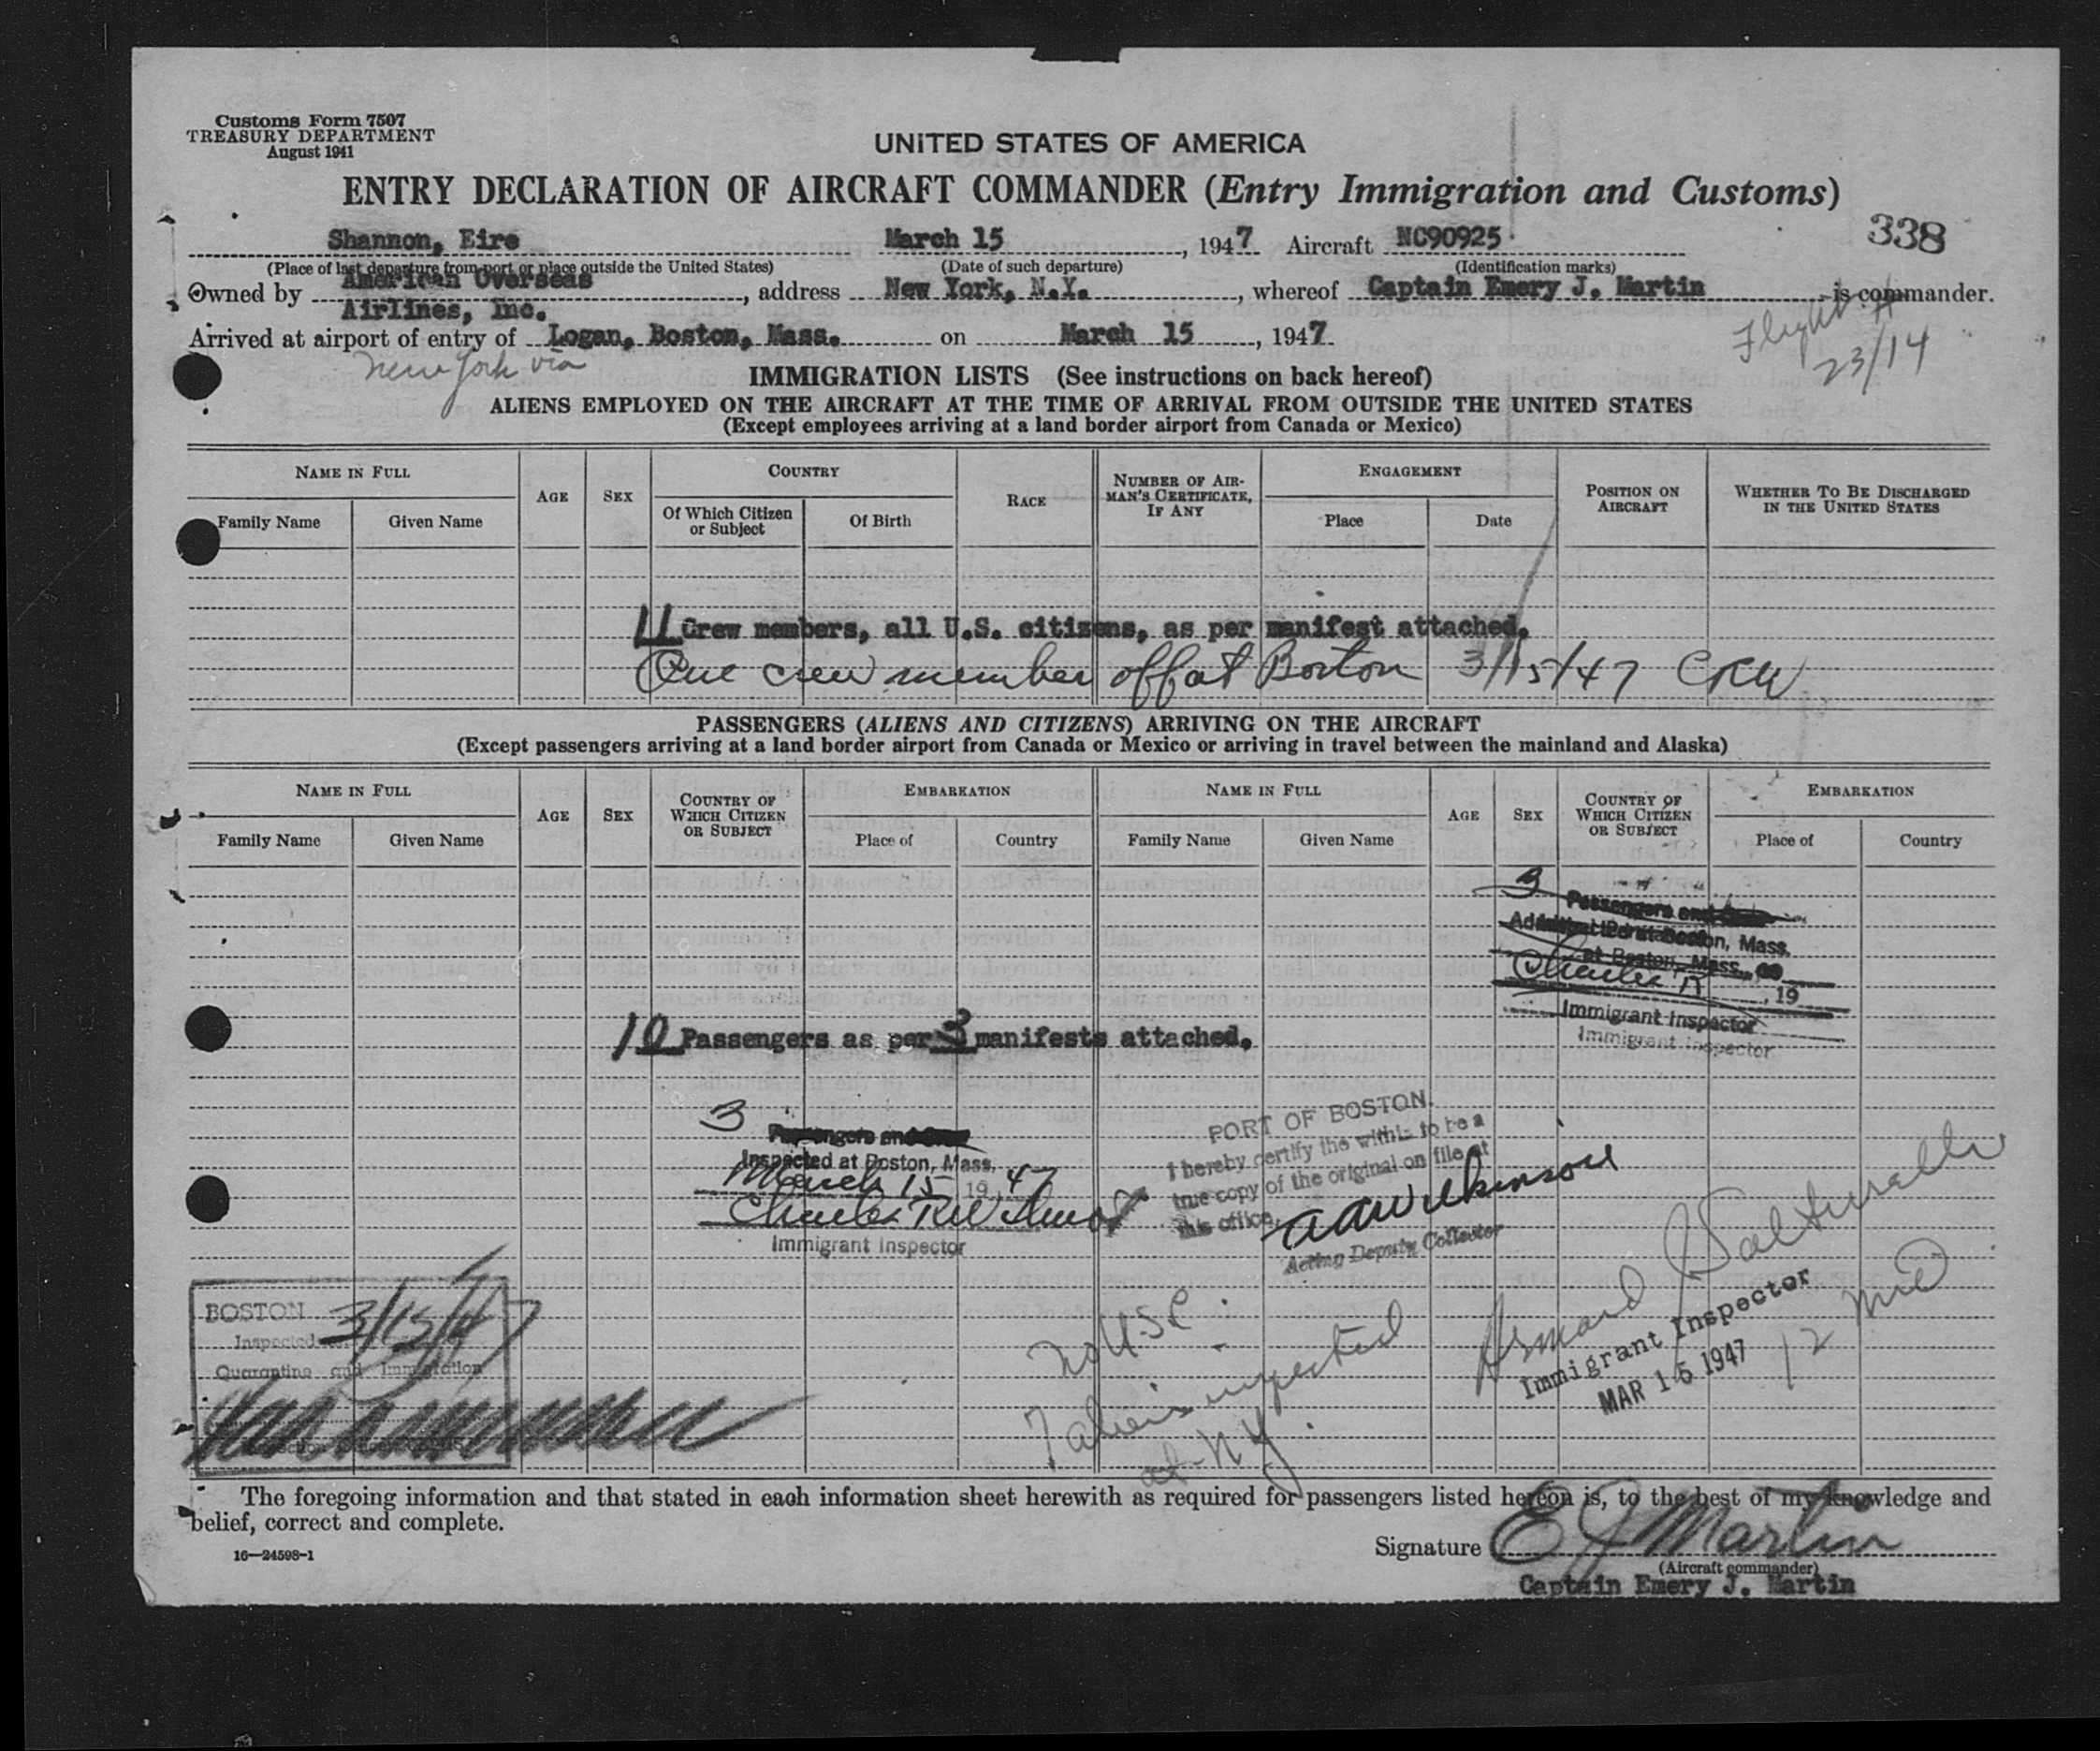 Customs Form 7507
TREASURY DEPARTMENT
August 1941
UNITED STATES OF AMERICA
ENTRY DECLARATION OF AIRCRAFT COMMANDER (Entry Immigration and Customs)
338
Shannon, Eire March 15, 1947 Aircraft NC90925
(Place of last departure from port or place outside the United States) (Date of such departure) (Identification marks)
American Overseas
Owned by , address New York, N.Y., whereof Captain Emery J. Martin is commander.
Airlines, Inc.
Arrived at airport of entry of Logan, Boston, Mass. on March 15, 1947
Flight #
23/14
New York via
IMMIGRATION LISTS (See instructions on back hereof)
ALIENS EMPLOYED ON THE AIRCRAFT AT THE TIME OF ARRIVAL FROM OUTSIDE THE UNITED STATES
(Except employees arriving at a land border airport from Canada or Mexico)
NAME IN FULL
Family Name Given Name
AGE
SEX
COUNTRY
Of Which Citizen or Subject Of Birth
RACE
NUMBER OF AIRMAN'S CERTIFICATE, IF ANY
ENGAGEMENT
Place Date
POSITION ON AIRCRAFT
WHETHER TO BE DISCHARGED IN THE UNITED STATES
11 Crew members, all U.S. citizens, as per manifest attached.
One crew member off at Boston 3/15/47 CRW
PASSENGERS (ALIENS AND CITIZENS) ARRIVING ON THE AIRCRAFT
(Except passengers arriving at a land border airport from Canada or Mexico or arriving in travel between the mainland and Alaska)
NAME IN FULL
Family Name Given Name
AGE
SEX
COUNTRY OF WHICH CITIZEN OR SUBJECT
EMBARKATION
Place of Country
NAME IN FULL
Family Name Given Name
AGE
SEX
COUNTRY OF WHICH CITIZEN OR SUBJECT
EMBARKATION
Place of Country
3
Passengers and Crew
at Boston, Mass.
Charles R
, 19
Immigrant Inspector
Immigrant Inspector
10 Passengers as per 3 manifests attached.
3
Passengers and Crew
Inspected at Boston, Mass.
March 15 19 47
Immigrant Inspector
PORT OF BOSTON.
I hereby certify the within to be a
true copy of the original on file at
this office.
AAWilkinson
Acting Deputy Collector
BOSTON
Inspected 3/15/47
Quarantine and Immigration
No USC
7 aliens inspected
at NY
Armand
Immigrant Inspector
MAR 15 1947
The foregoing information and that stated in each information sheet herewith as required for passengers listed hereon is, to the best of my knowledge and
belief, correct and complete.
Signature E J Martin
(Aircraft commander)
Captain Emery J. Martin
16—24598-1